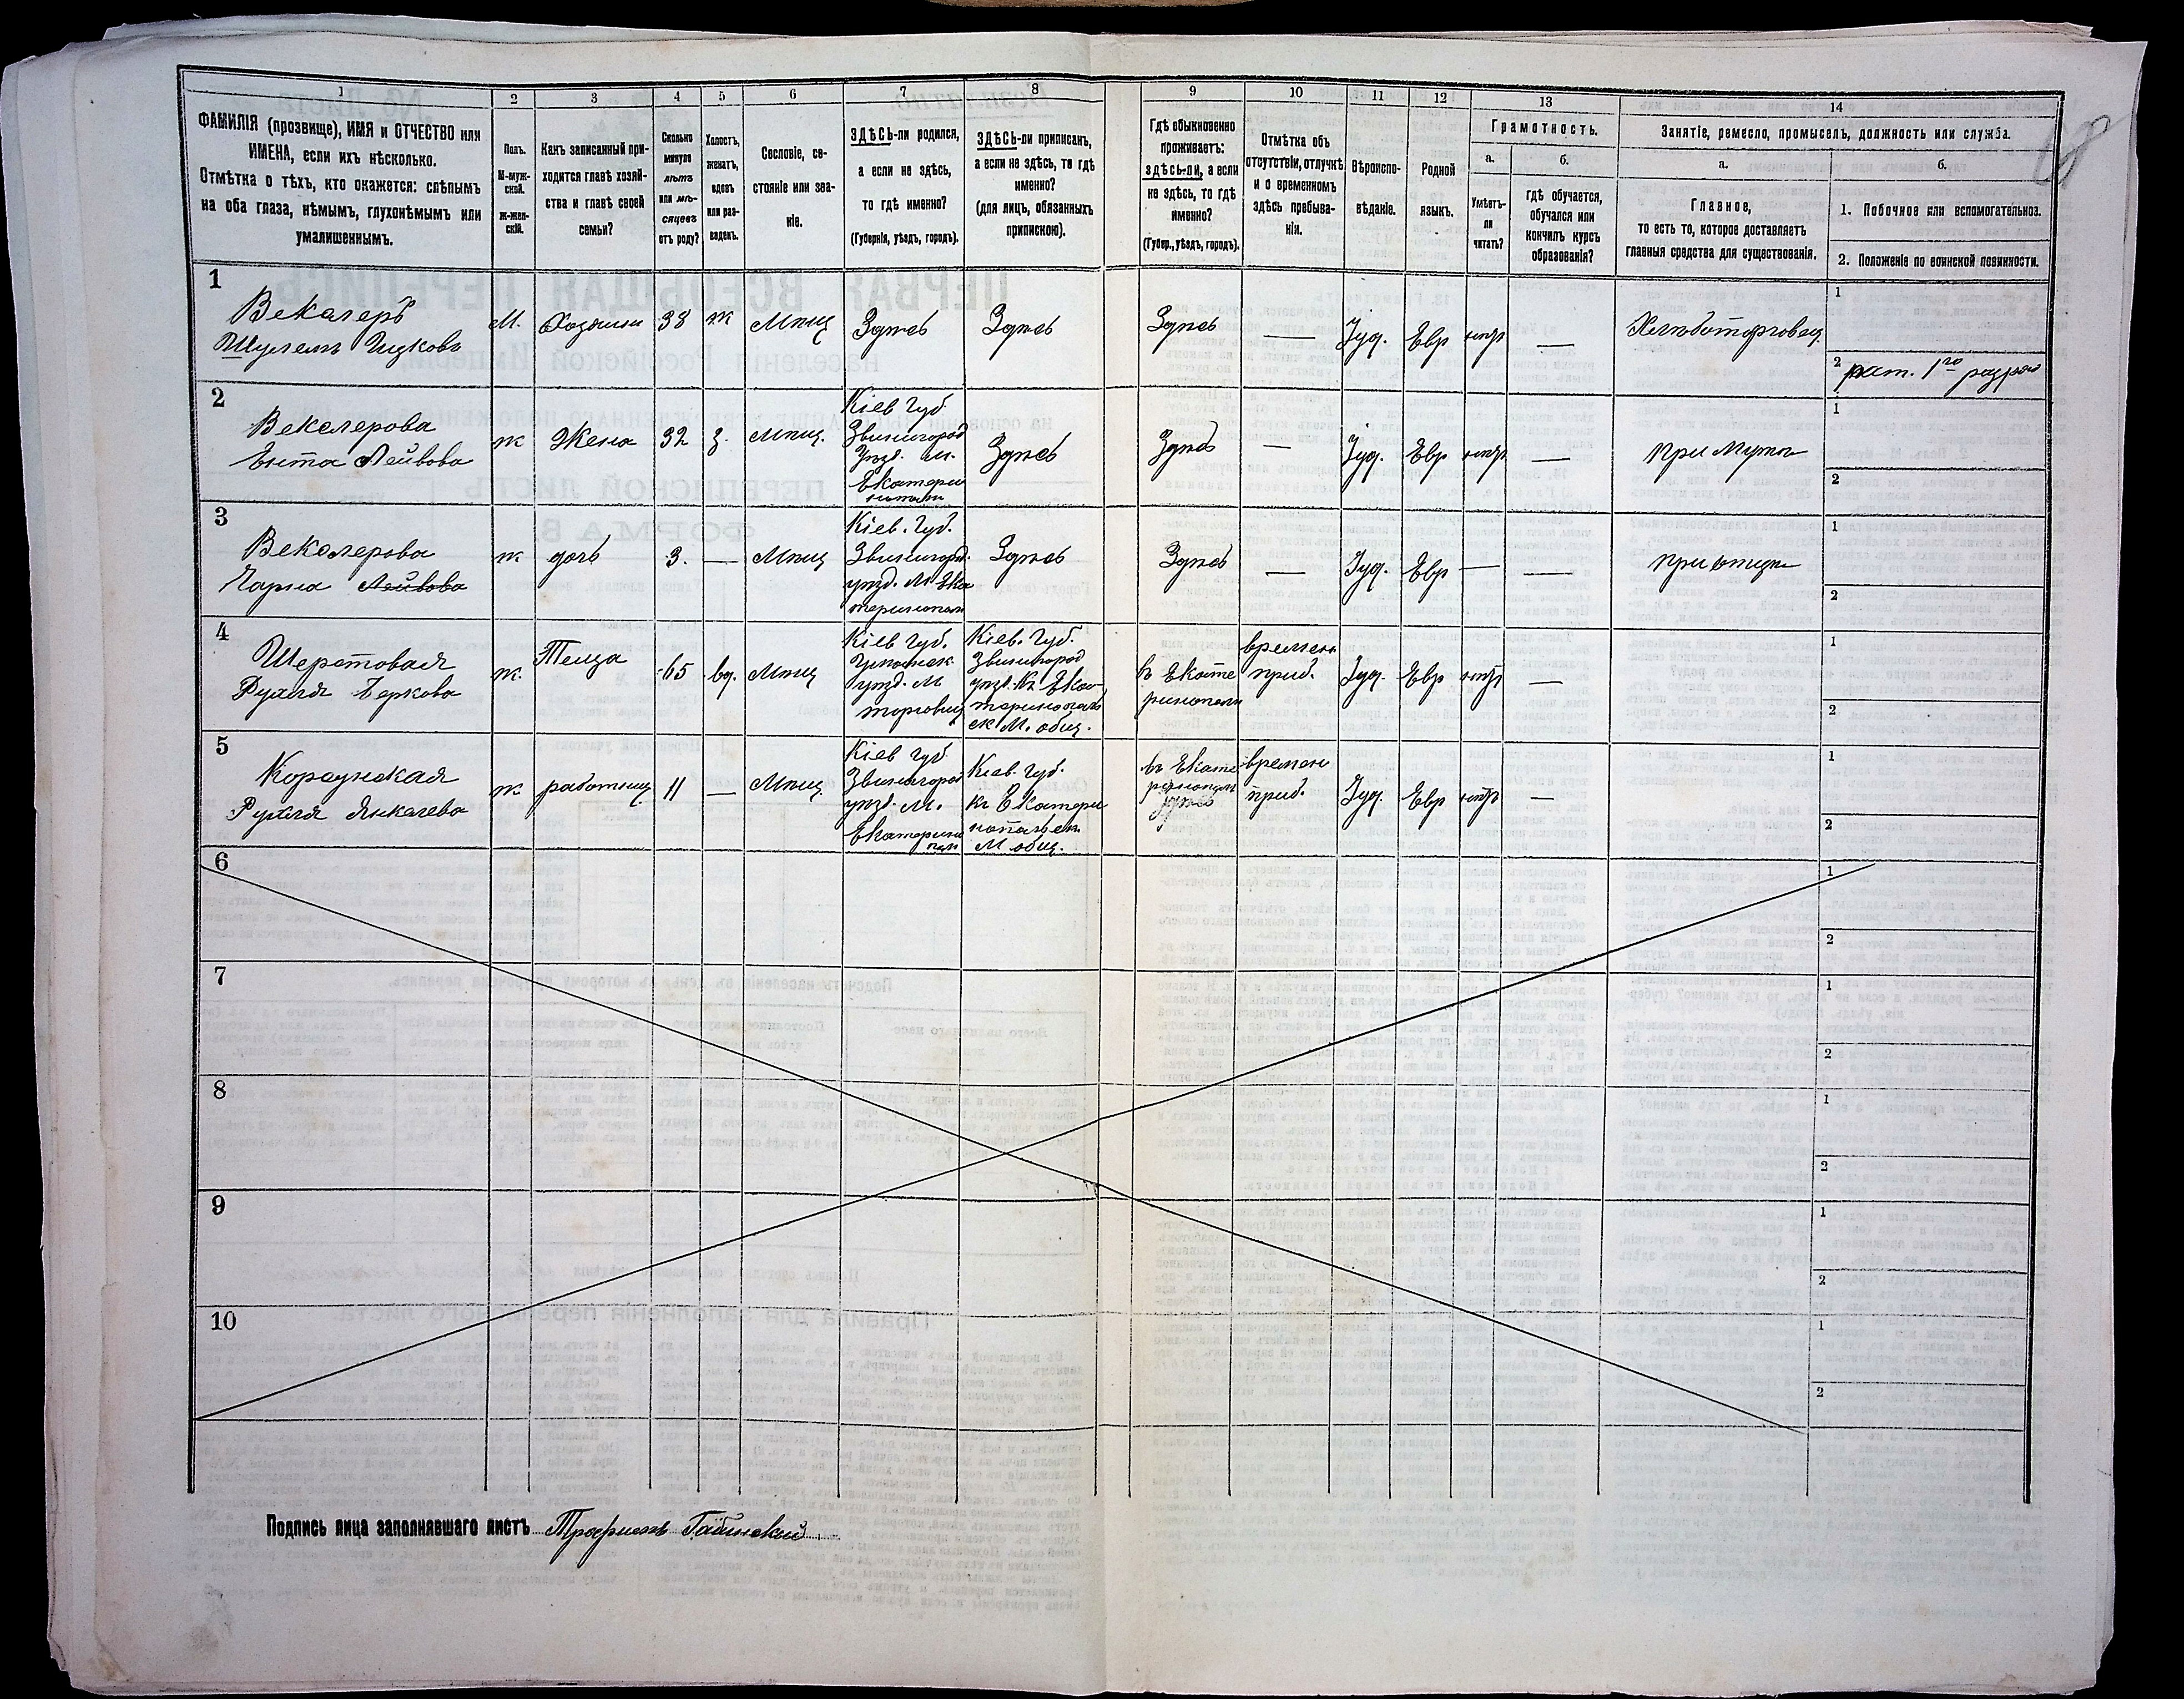 1 2 3 4 5 6 7 8 9 10 11 12 13 14
ФАМИЛІЯ (прозвище), ИМЯ и ОТЧЕСТВО или
ИМЕНА, если ихъ нѣсколько.
Отмѣтка о тѣхъ, кто окажется: слѣпымъ
на оба глаза, нѣмымъ, глухонѣмымъ или
умалишеннымъ.
Полъ.
М-муж-
ской.
ж-жен-
скій.
Какъ записанный при-
ходится главѣ хозяй-
ства и главѣ своей
семьи?
Сколько
минуло
лѣтъ
или мѣ-
сяцевъ
отъ роду?
Холостъ,
женатъ,
вдовъ
или раз-
веденъ.
Сословіе, со-
стояніе или зва-
ніе.
ЗДѢСЬ-ли родился,
а если не здѣсь,
то гдѣ именно?
(Губернія, уѣздъ, городъ).
ЗДѢСЬ-ли приписанъ,
а если не здѣсь, то гдѣ
именно?
(для лицъ, обязанныхъ
припискою).
Гдѣ обыкновенно
проживаетъ:
здѣсь-ли, а если
не здѣсь, то гдѣ
именно?
(Губер., уѣздъ, городъ).
Отмѣтка объ
отсутствіи, отлучкѣ
и о временномъ
здѣсь пребыва-
ніи.
Вѣроиспо-
вѣданіе.
Родной
языкъ.
Грамотность.
а.
б.
Умѣетъ-
ли
читать?
гдѣ обучается,
обучался или
кончилъ курсъ
образованія?
Занятіе, ремесло, промыселъ, должность или служба.
а.
б.
Главное,
то есть то, которое доставляетъ
главныя средства для существованія.
1. Побочное или вспомогательное.
2. Положеніе по воинской повинности.
1
Векслеръ
Шулемъ Ицковъ
М.
Хозяинъ
38
ж
Мѣщ
Здѣсь
Здѣсь
Здѣсь
—
Іуд.
Евр
—
Хлѣботорговец
1
2
рат. 1го разряд
2
Векслерова
Ента Лейбова
ж
Жена
32
з.
Мѣщ.
Кіев Губ.
Звенигород
Уѣзд. м.
Екатери
нополь
Здѣсь
Здѣсь
—
Іуд.
Евр
—
при Мужѣ
1
2
3
Векслерова
Чарна Лейбова
ж
дочь
3.
—
Мѣщ
Кіев. Губ.
Звенигород.
уѣзд. М. Ека
теринополь
Здѣсь
Здѣсь
—
Іуд.
Евр
—
—
при отцѣ
1
2
4
Шерстовая
Рухля Беркова
ж.
Теща
65
вд.
Мѣщ
Кіев Губ.
уѣзд. М
торговиц
Кіев. Губ.
Звенигород
уѣзд. Къ Ека
теринополь
ск М. общ.
въ Екате
ринополѣ
времен
приб.
Іуд.
Евр
—
1
2
5
Корсунская
Рухля Янкелева
ж.
работниц.
11
—
Мѣщ.
Кіев Губ
Звенигород
уѣзд. М.
Екатерино
пол
Кіев. Губ.
къ Екатери
нопольск
М общ.
въ Екате
ринополѣ
здѣсь
времен
приб.
Іуд.
Евр
—
1
2
6
1
2
7
1
2
8
1
2
9
1
2
10
1
2
Подпись лица заполнявшаго листъ Трофимъ